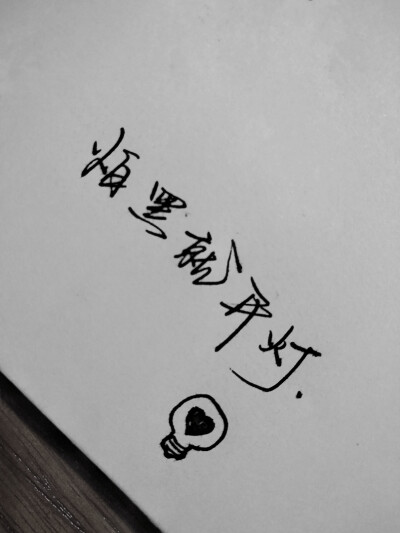 怕黑就开灯.